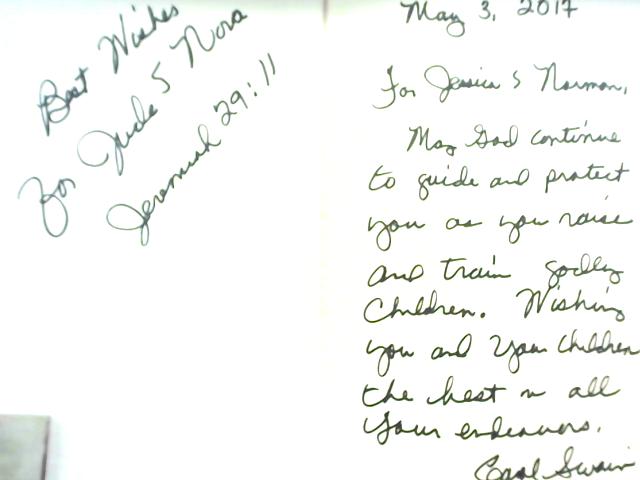 Best Wishes
For Jude & Nora
Jeremiah 29:11
May 3, 2017
For Jessica & Norman,
May God continue
to guide and protect
you as you raise
and train godly
Children. Wishing
you and your children
the best in all
your endeavors.
Carol Swain